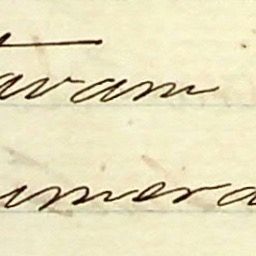 tavam
umera